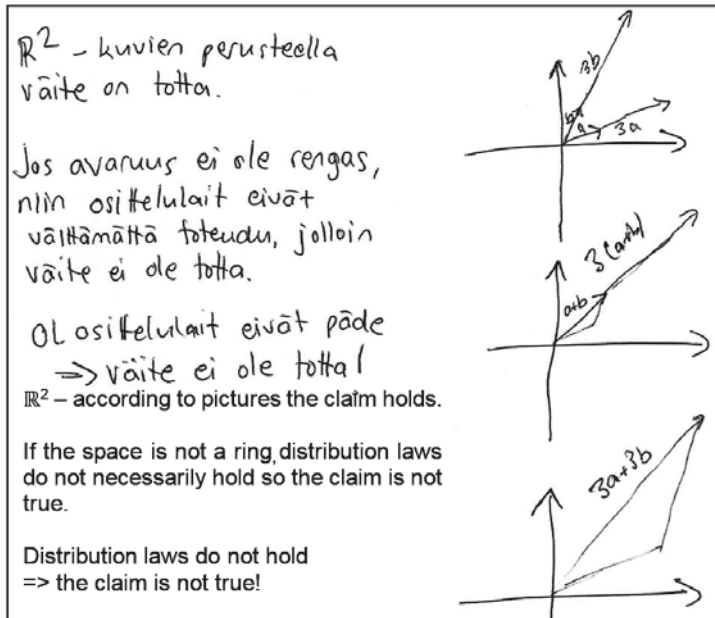 ℝ² - kuvien perusteella
väite on totta.
Jos avaruus ei ole rengas,
niin osittelulait eivät
välttämättä toteudu, jolloin
väite ei ole totta.
OL osittelulait eivät päde
=> väite ei ole totta!
ℝ² – according to pictures the claim holds.
If the space is not a ring, distribution laws
do not necessarily hold so the claim is not
true.
Distribution laws do not hold
=> the claim is not true!
3b
b
a
3a
3(a+b)
a+b
3a+3b